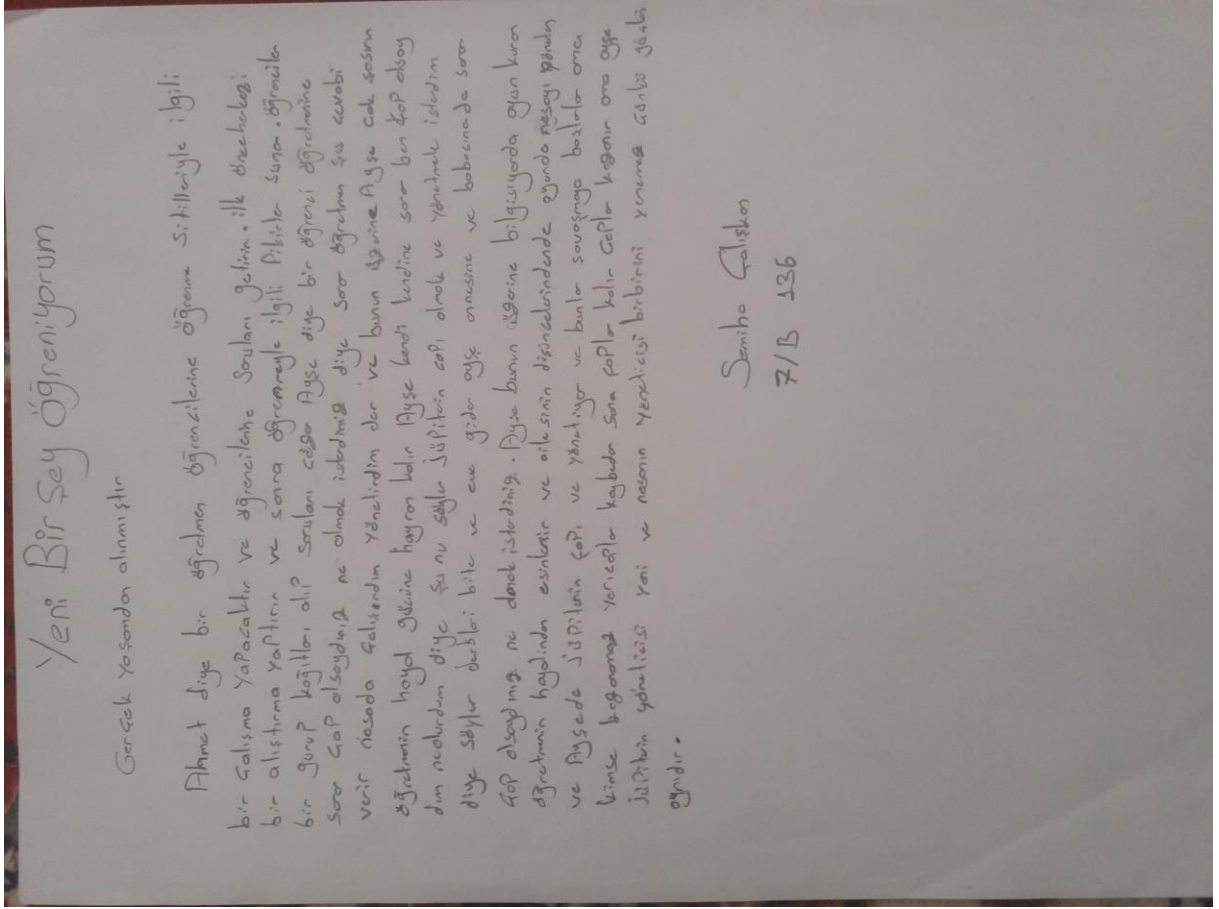 Yeni Bir Şey Öğreniyorum
Gerçek yaşamdan alınmıştır
Ahmet diye bir öğretmen öğrencilerine öğrenme sitilleriyle ilgili
bir çalışma yapacaktır ve öğrencilerine Soruları gelinin. ilk
bir alıştırma yaptırır ve sonra öğrenmeyle ilgili fikirler sunar. öğrenciler
bir gurup kağıtları alıp soruları çözer Ayşe diye bir öğrenci öğretmenine
sorar çöp olsaydınız ne olmak isterdiniz diye sorar öğretmen şu cevabi
verir nasada çalışırdım yönetirdim der ve bunun üzerine Ayşe çok şaşırır
öğretmenin hayal gücüne hayran kalır Ayşe kendi kendine sorar ben çöp olsay
dım neolurdum diye şunu söyler jüpiterin çöpü olmak ve yönetmek isterdim
diye söyler dersleri biter ve eve gider ayşe annesine ve babasınada sorar
çöp olsaydınız ne olmak isterdiniz. Ayşe bunun üzerine bilgisiyarda oyun kurar
öğretmenin hayalinden esinlenir ve ailesinin düşüncelerindende oyunda nasayı yöneten
ve Ayşede jüpiterin çöpü ve yönetiyor ve bunlar savaşmaya başlarlar ama
kimse kazanamaz kaybeder sona çöpler kalır çöpler kazanır ama ayşe
jüpiterin yöneticisi yani ve nasanın yöneticisi birbirini yenemez çünkü güçleri
aynıdır.
Semiha Çalışkan
7/B 136